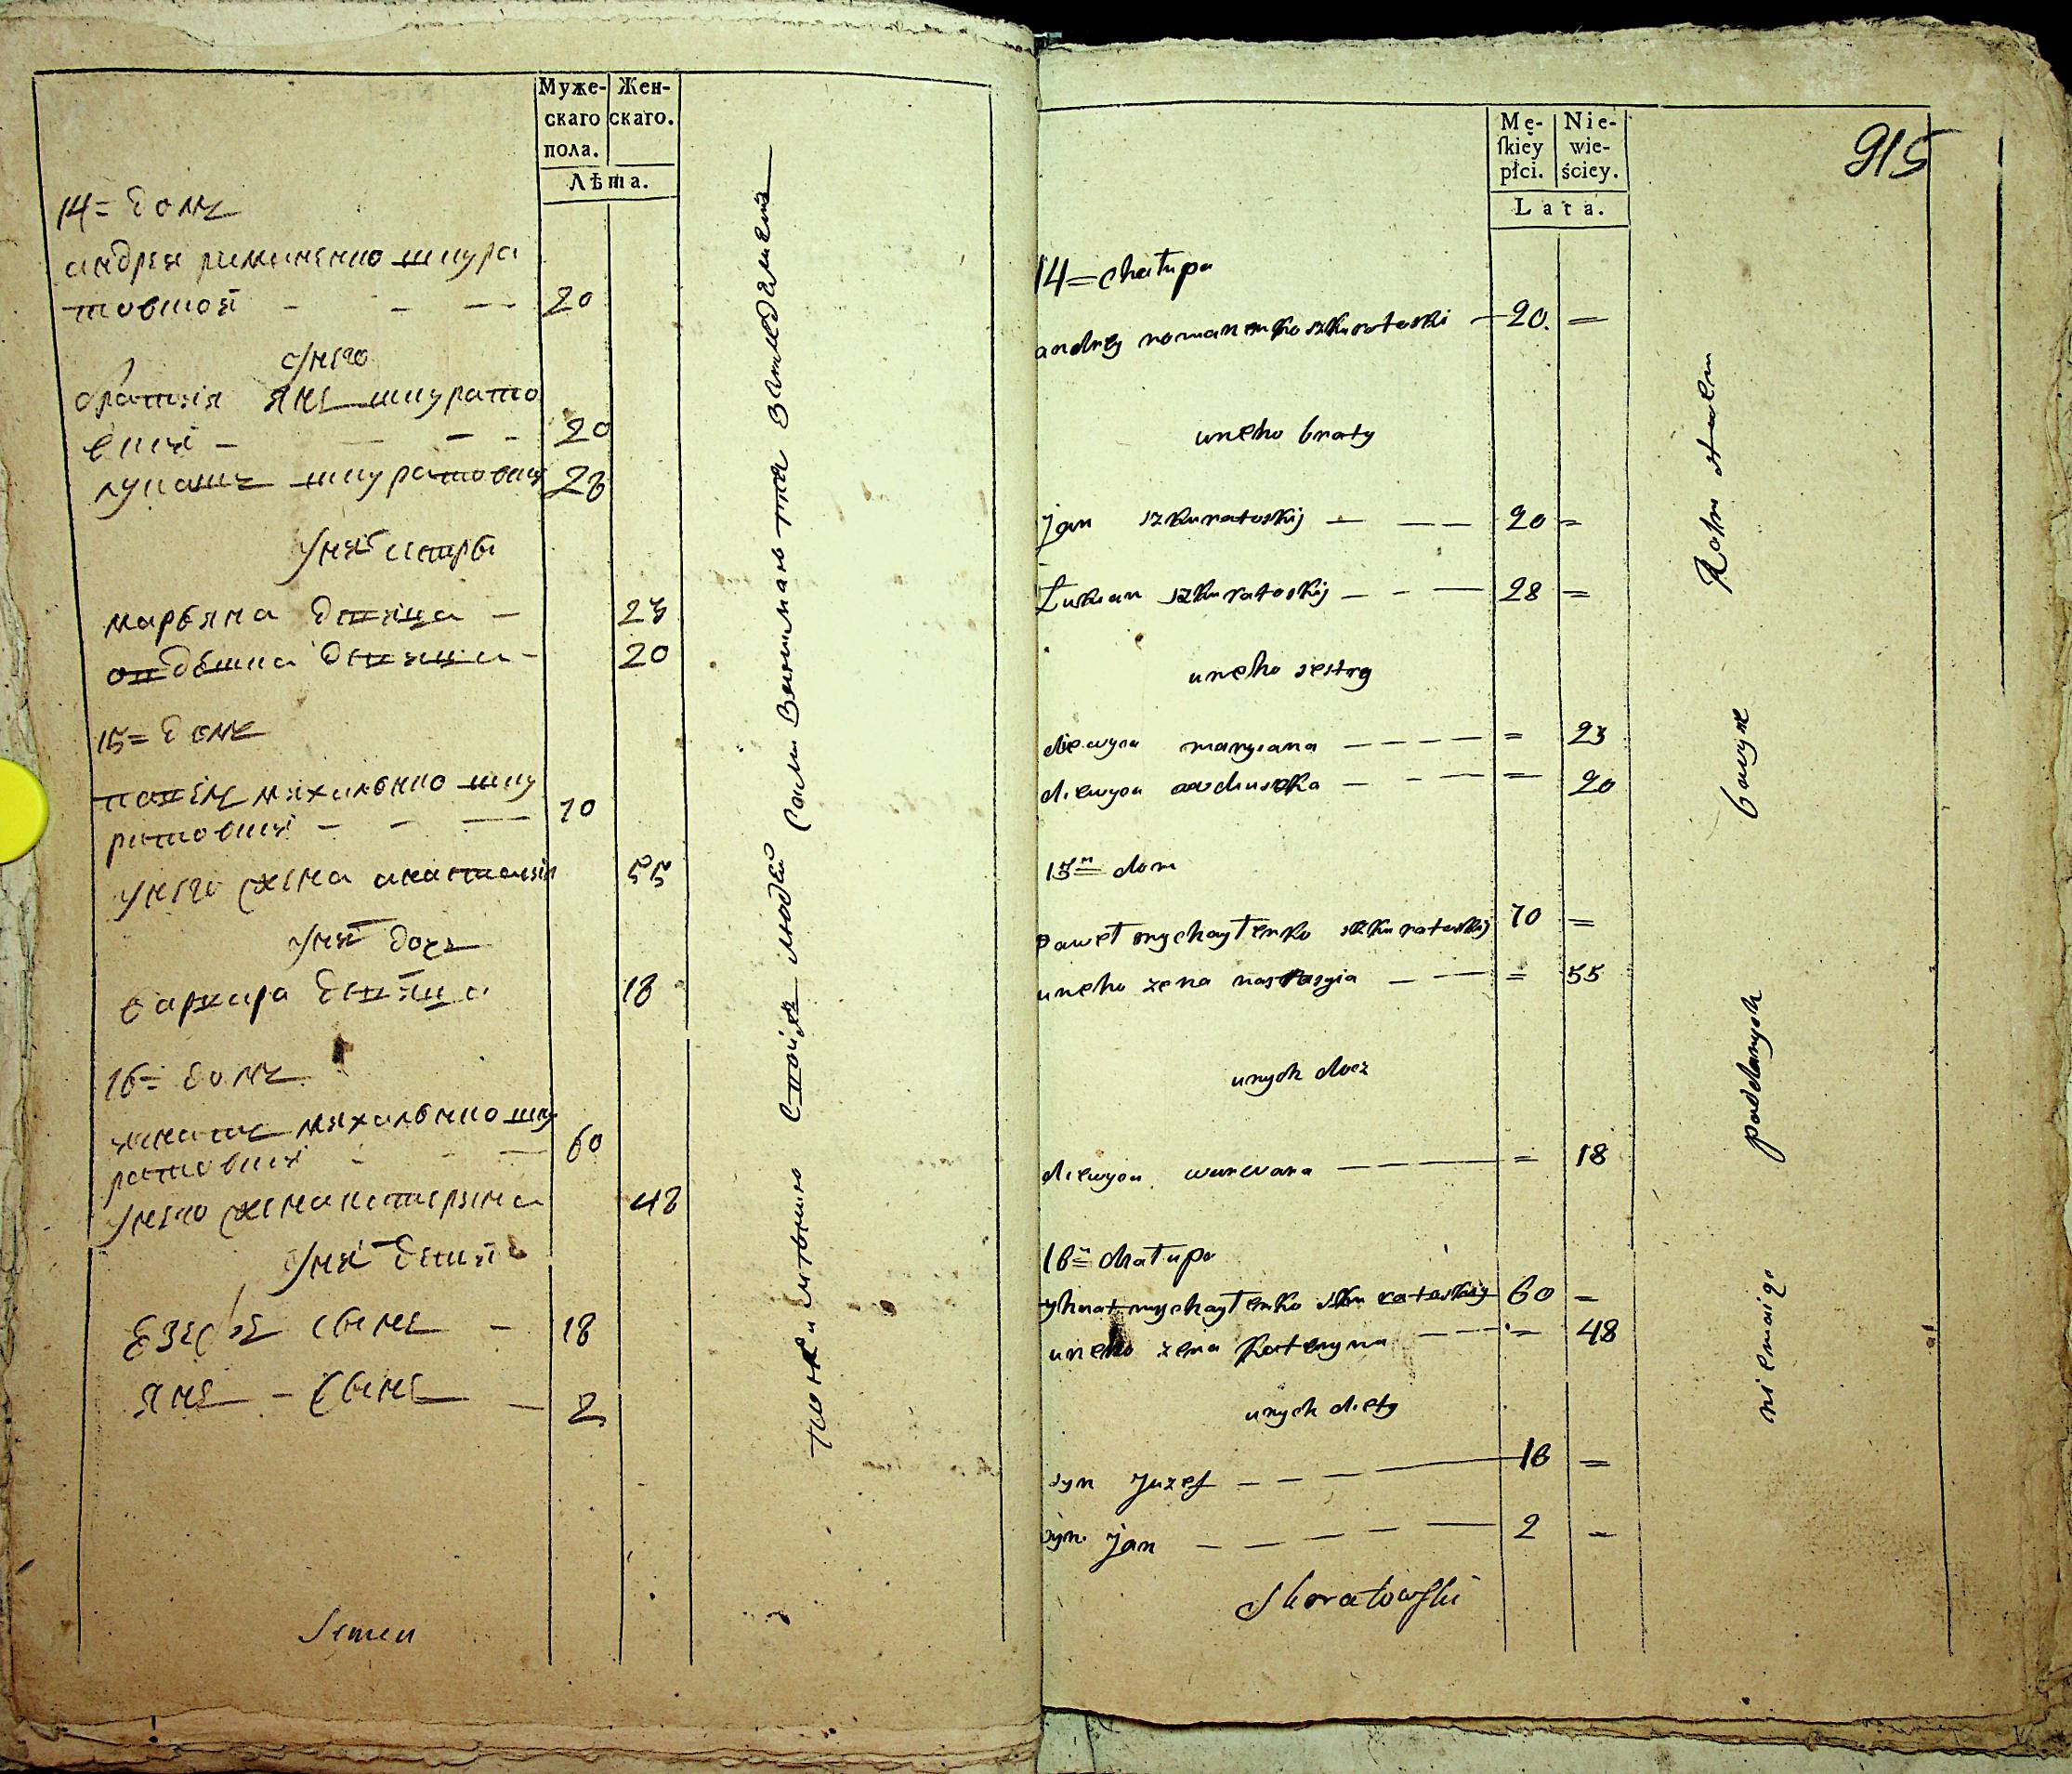 Муже-
скаго
пола.
Жен-
скаго.
Лѣта.
14= домъ
андрей романенко шкура
товский - - - 20
у него
братия янъ шкурато
вский - - - 20
лукашъ шкуратовский 28
марьяна девица - 23
девица - 20
15= домъ
павелъ михаленко шку
ратовский - - - 70
у него жена анастазия 55
у них дочь
варвара девица 18
16= домъ
игнатъ михаленко шку
ратовский - - - 60
у него жена катерина 48
у них дети
юзефъ сынъ - 18
янъ - сынъ - 2
Semen
Mę-
ſkiey
płci.
Nie-
wie-
ściey.
Lata.
915
14= chałupa
andrey romanenko szkuratoski - 20. =
uneho braty
jan szkuratoskij - - - 20 =
Łukian szkuratoskij - - - 28 =
uneho sestry
diewyca maryiana - - - - = 23
diewyca - - - = 20
15= dom
Paweł mychayłenko szkuratoskij 70 =
uneho zena nastasyia - - = 55
unych docz
diewyca warwara - - - = 18
16= chałupa
yhnat mychayłenko szkuratoskij 60 =
uneho zena Kateryna - - = 48
unych diety
syn Juzef - - - 18 =
syn jan - - - - 2 =
Skoratowſki
poddanych
niemaigo